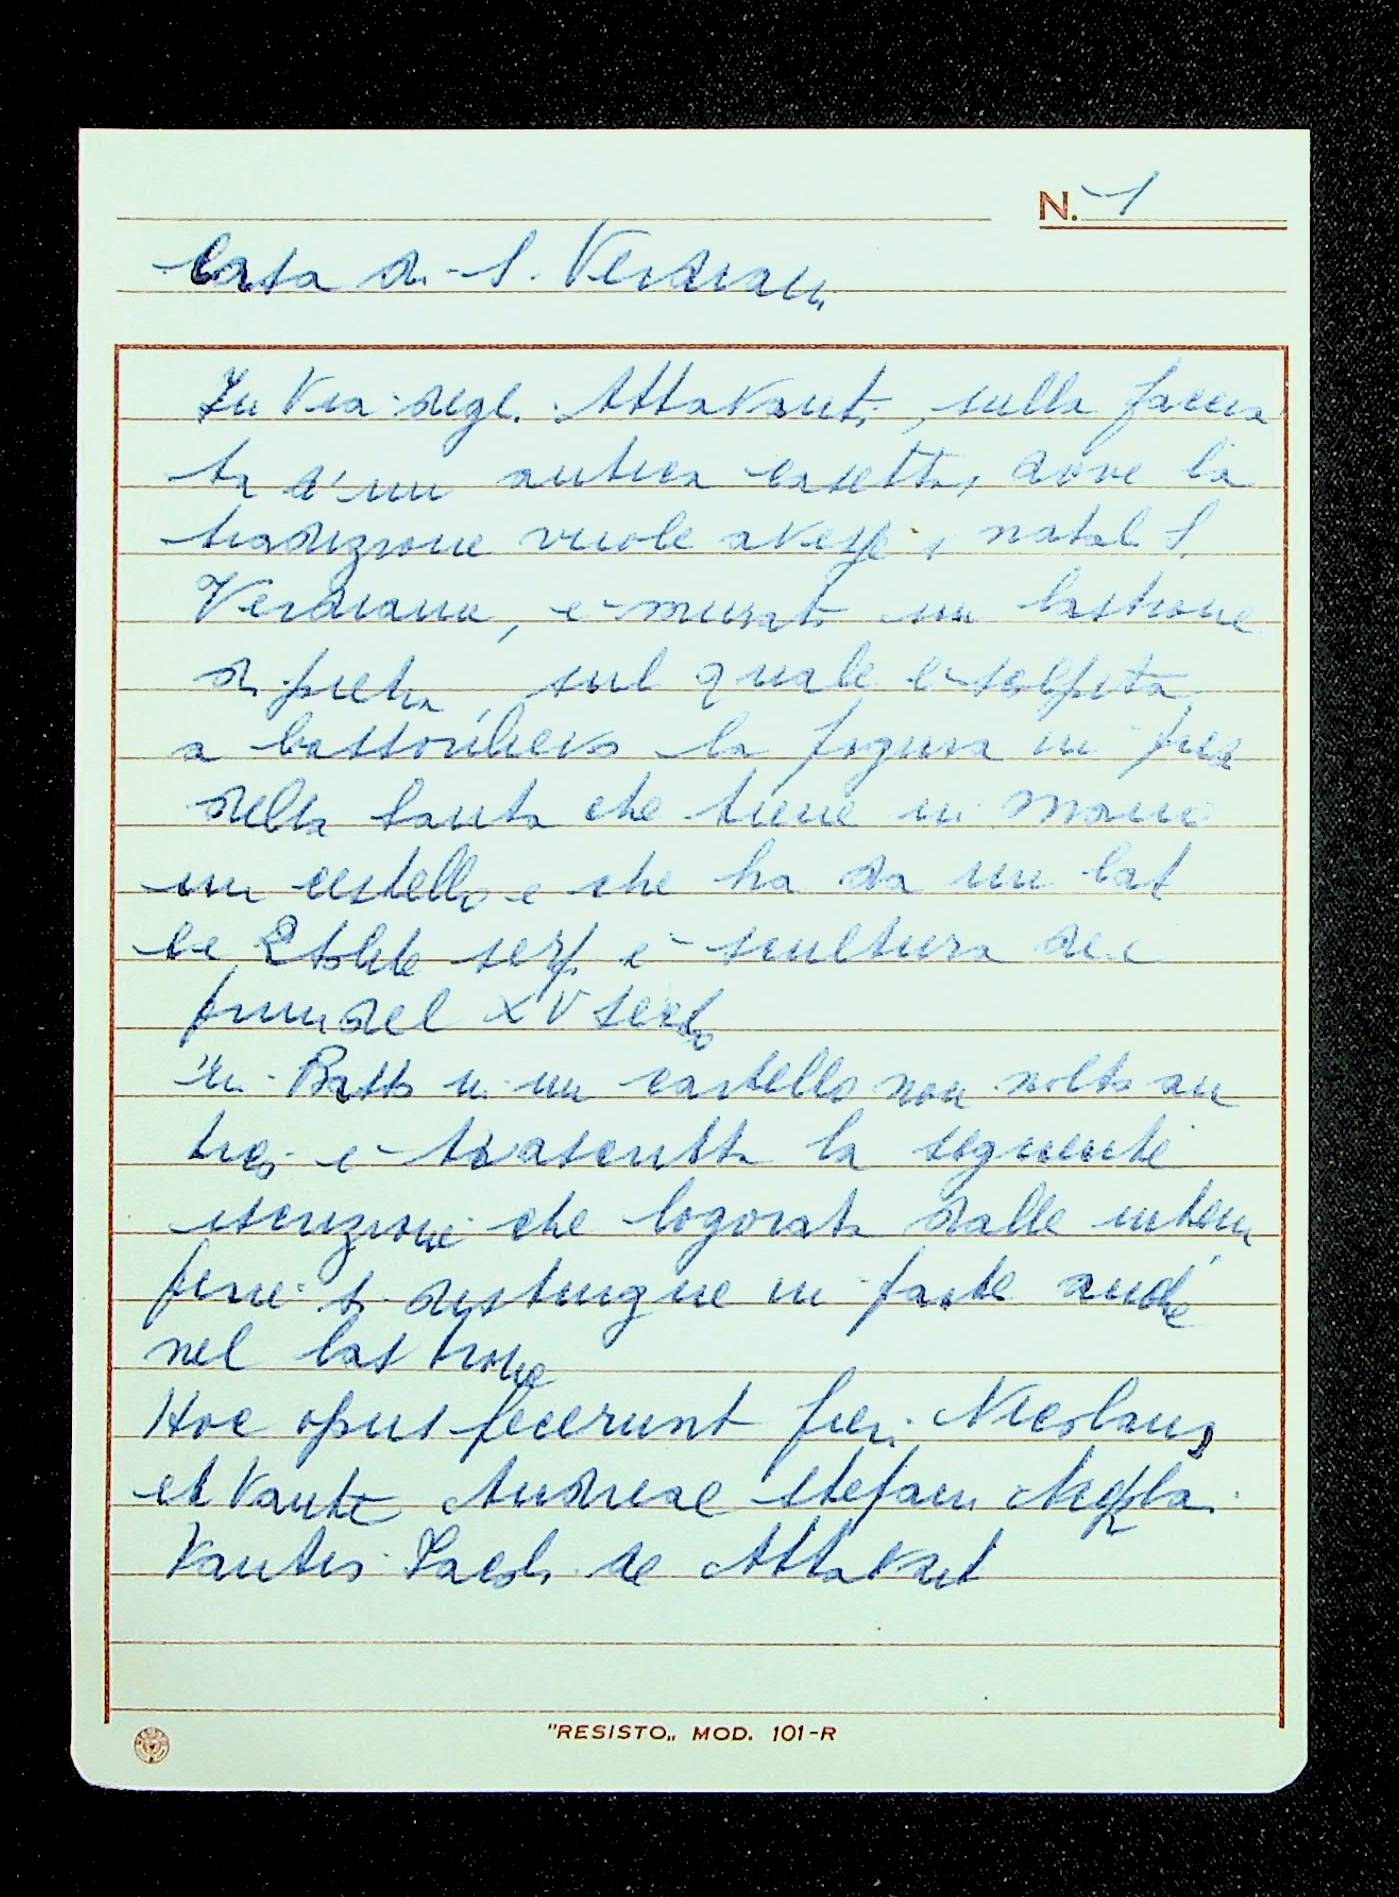 N. 1
Casa di S. Verdiana
In Via degli Attavanti, sulla faccia
ta d'un antica casetta, dove la
tradizione vuole avesse i natali S.
Verdiana, è murato un lastrone
di pietra, sul quale è scolpita
a bassorilievo la figura in piedi
della Santa che tiene in mano
un cestello e che ha da un lat
serp. è scultura dei
primi del XV secolo
In Basso in un cartello non molto an
tico è trascritta la seguente
iscrizione che logorata dalle intem
perie si distingue in parte anche
nel lastrone
Hoc opus fecerunt fieri Nicolaus
et Vante Andreae Stefani
Vantes Iacobi de Attavant
"RESISTO„ MOD. 101-R